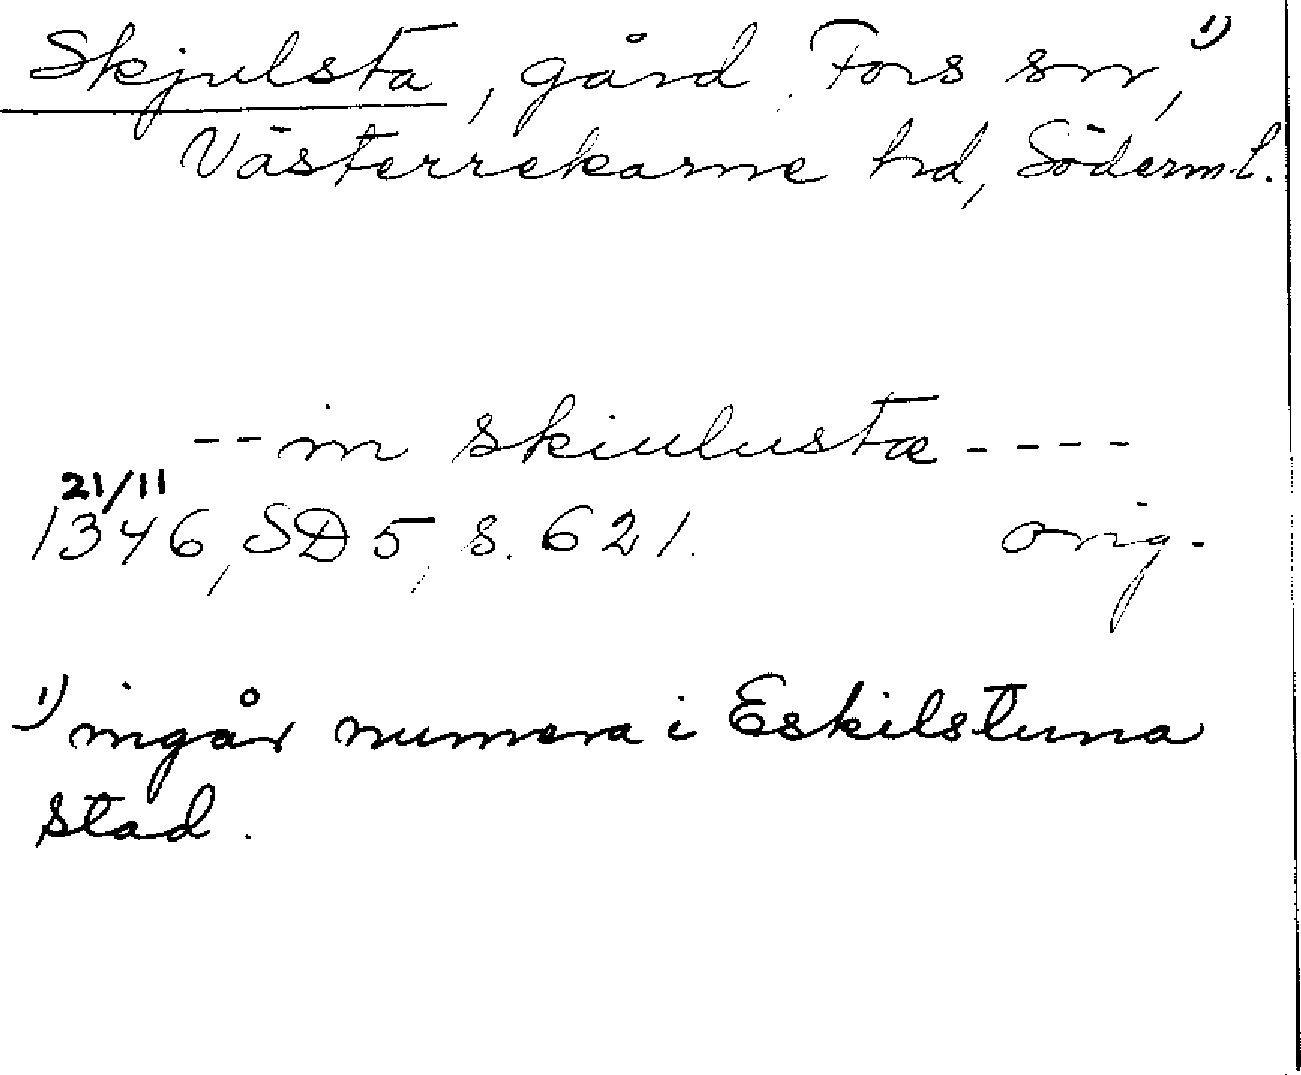 Skjulsta, gård. Fors sn, 1)
Västerrekarne hd, Söderml.
-- in skiulustæ ----
21/11
1346, SD 5, s. 621. orig.
1) ingår numera i Eskilstuna
stad.